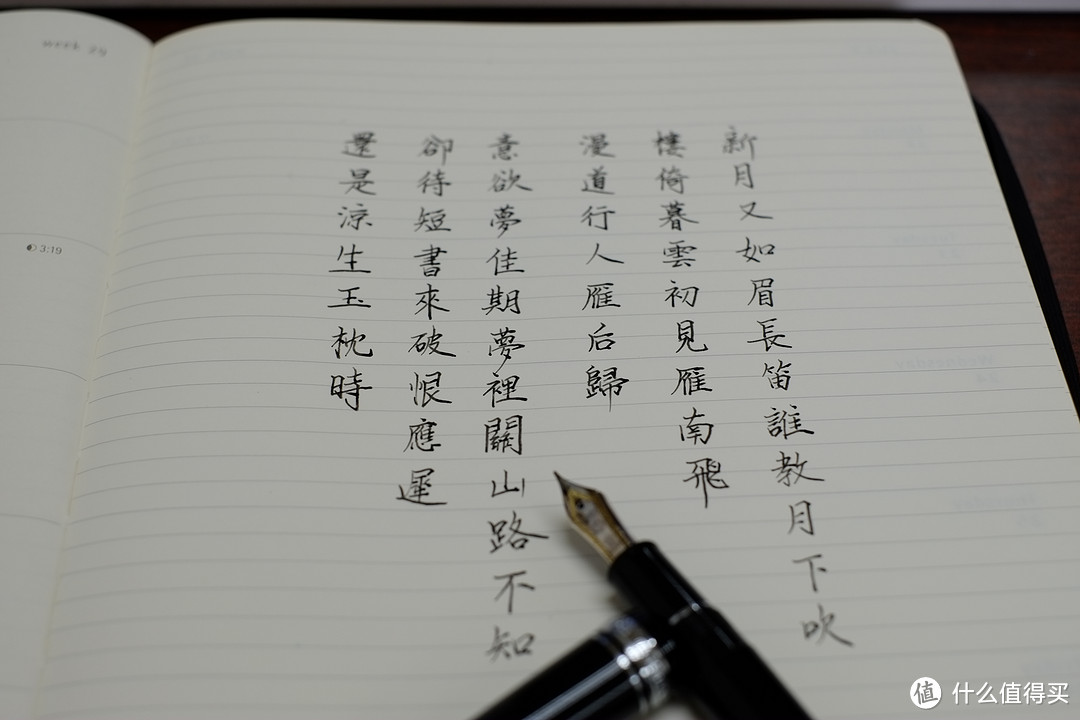 新月又如眉長笛誰教月下吹
樓倚暮雲初見雁南飛
漫道行人雁后歸
意欲夢佳期夢裡關山路不知
卻待短書來破恨應遲
還是涼生玉枕時
week 29
3:19
值 什么值得买